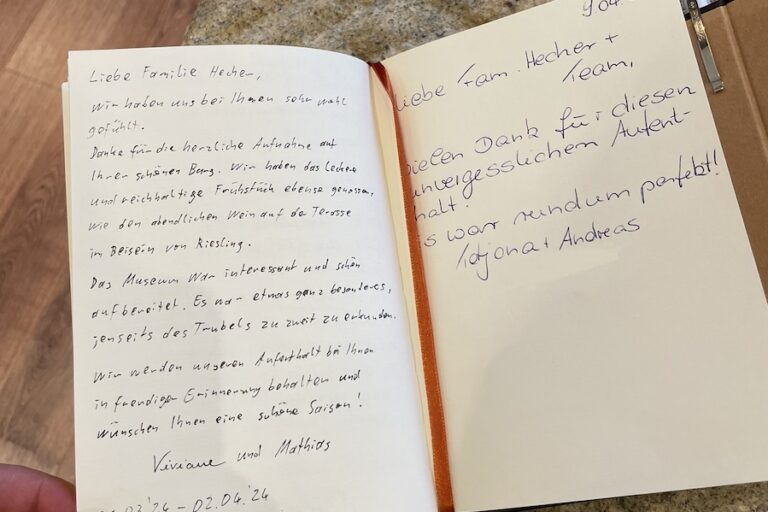 Liebe Familie Hecher,
wir haben uns bei Ihnen sehr wohl
gefühlt.
Danke für die herzliche Aufnahme auf
Ihrer schönen Burg. Wir haben das leckere
und reichhaltige Frühstück ebenso genossen,
wie den abendlichen Wein auf de Terosse
im Beisein von Riesling.
Das Museum war interessant und schön
aufbereitet. Es war etwas ganz besonderes,
jenseits des Trubels zu zweit zu erkunden.
Wir werden unseren Aufenthalt bei Ihnen
in freudiger Erinnerung behalten und
wünschen Ihnen eine schöne Saison!
Viviane und Mathias
03.'24 – 02.04.'24
9.04.
Liebe Fam. Hecher +
Team,
vielen Dank für diesen
unvergesslichen Aufent-
halt!
s war rundum perfekt!
Tatjana + Andreas